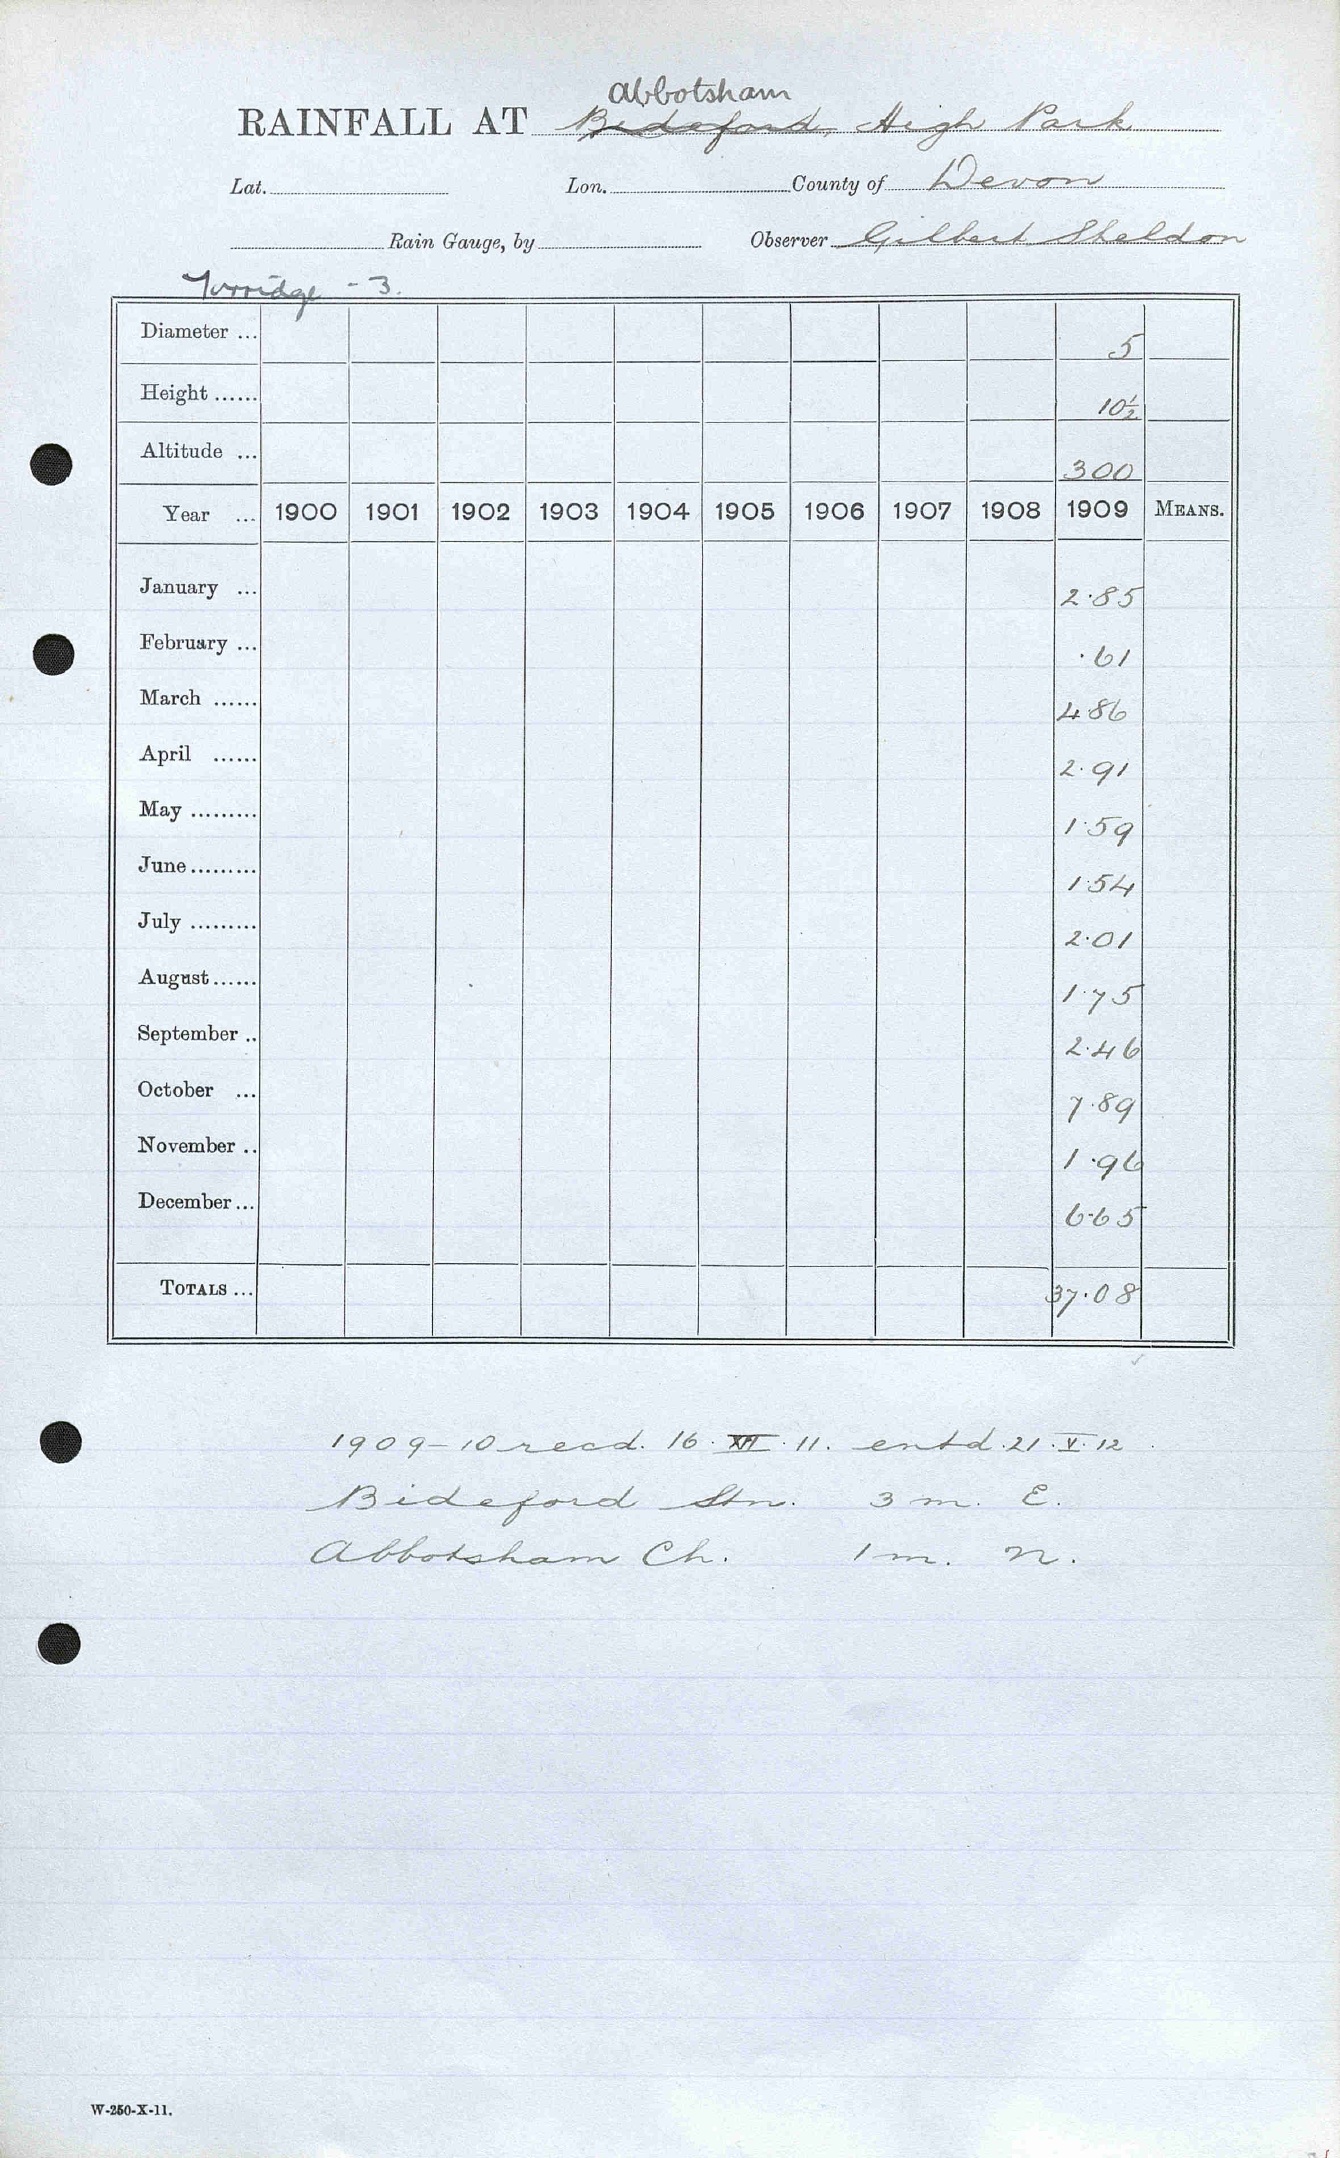 Abbotsham
RAINFALL AT Bideford, High Park
Lat. Lon. County of Devon
Rain Gauge, by Observer Gilbert Sheldon
Torridge - 3.
Diameter ... 5
Height ...... 10½
Altitude ... 300
Year ... 1900 1901 1902 1903 1904 1905 1906 1907 1908 1909 MEANS.
January ... 2.85
February ... .61
March ...... 4.86
April ...... 2.91
May ......... 1.59
June ......... 1.54
July ......... 2.01
August ...... 1.75
September .. 2.46
October ... 7.89
November .. 1.96
December ... 6.65
TOTALS ... 37.08
1909-10 recd. 16. XII. 11. entd. 21. V. 12.
Bideford Stn. 3 m. E.
Abbotsham Ch. 1 m. N.
W-250-X-11.